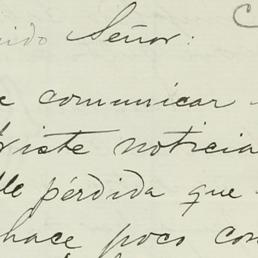 Señor:
comunicar
triste noticia
pérdida que
hace poco con